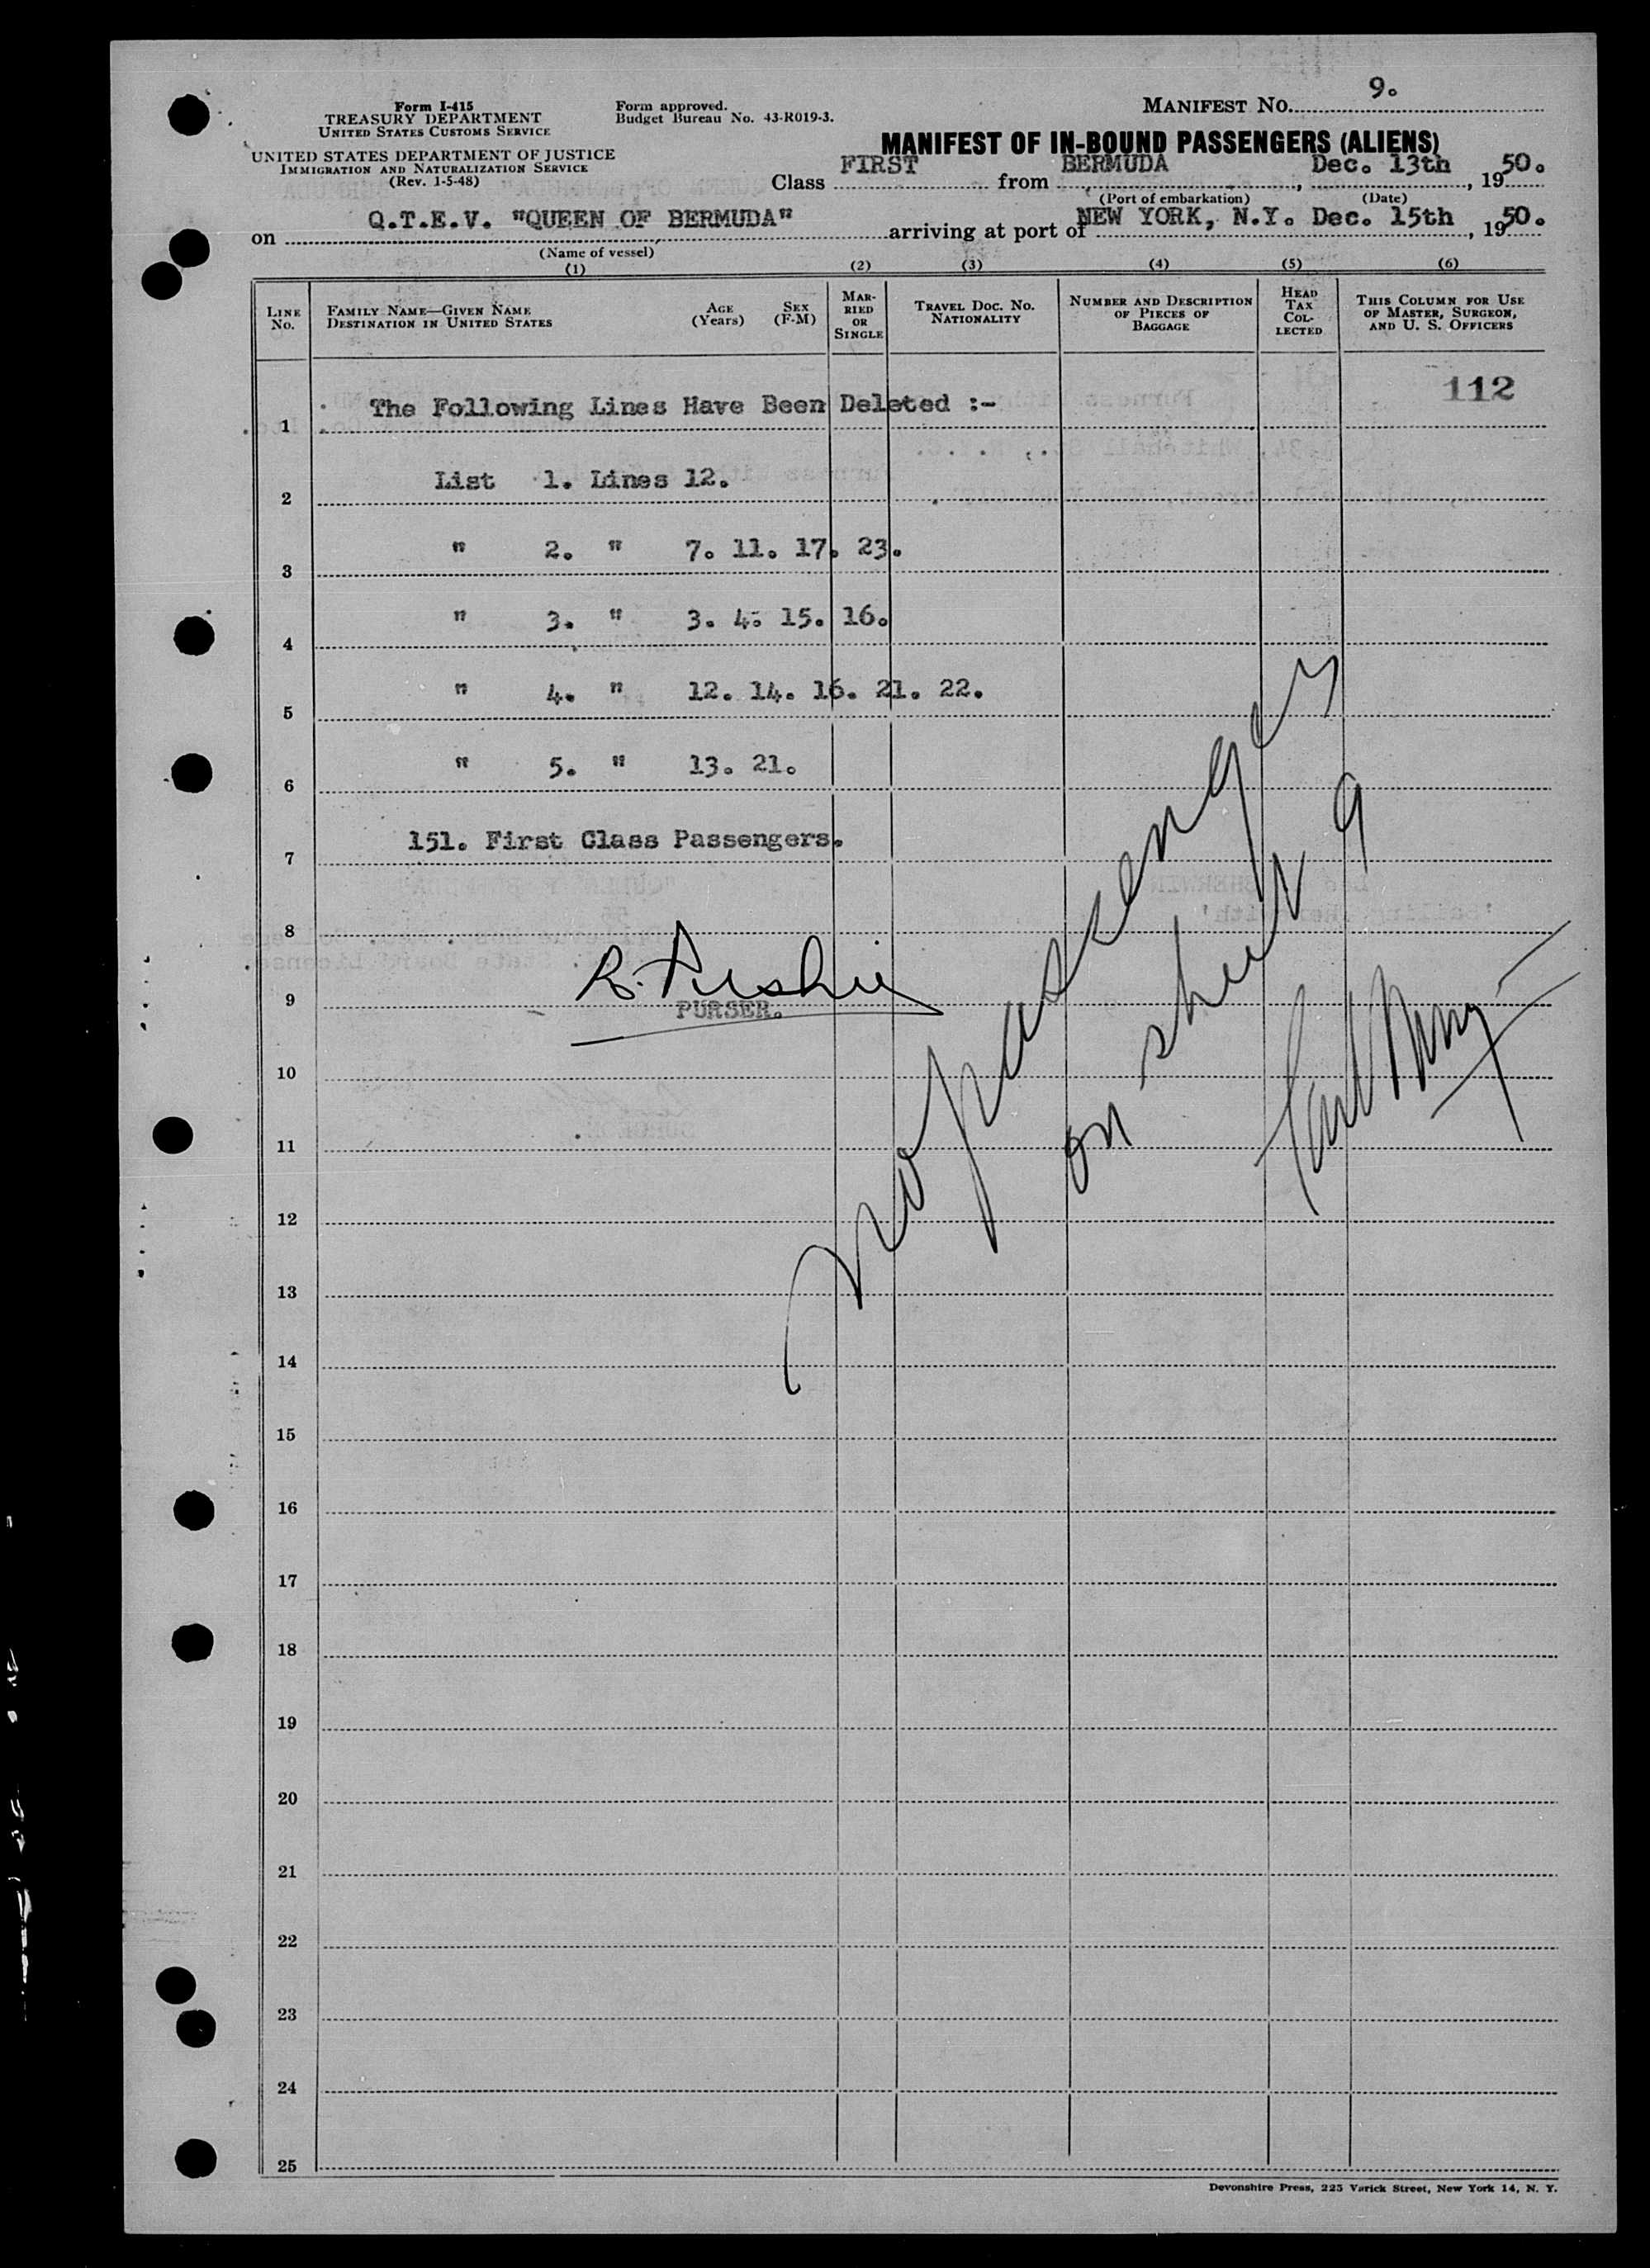 Form I-415
TREASURY DEPARTMENT
UNITED STATES CUSTOMS SERVICE
UNITED STATES DEPARTMENT OF JUSTICE
IMMIGRATION AND NATURALIZATION SERVICE
(Rev. 1-5-48)
Form approved.
Budget Bureau No. 43-R019-3.
MANIFEST NO. 9.
MANIFEST OF IN-BOUND PASSENGERS (ALIENS)
Class FIRST from BERMUDA, Dec. 13th, 1950.
(Port of embarkation) (Date)
on Q.T.E.V. "QUEEN OF BERMUDA" arriving at port of NEW YORK, N.Y. Dec. 15th, 1950.
(Name of vessel)
(1) (2) (3) (4) (5) (6)
LINE No.
FAMILY NAME—GIVEN NAME
DESTINATION IN UNITED STATES
AGE (Years)
SEX (F-M)
MARRIED OR SINGLE
TRAVEL DOC. NO. NATIONALITY
NUMBER AND DESCRIPTION OF PIECES OF BAGGAGE
HEAD TAX COLLECTED
THIS COLUMN FOR USE OF MASTER, SURGEON, AND U. S. OFFICERS
112
1 The Following Lines Have Been Deleted :-
2 List 1. Lines 12.
3 " 2. " 7. 11. 17. 23.
4 " 3. " 3. 4. 15. 16.
5 " 4. " 12. 14. 16. 21. 22.
6 " 5. " 13. 21.
7 151. First Class Passengers.
8
9 PURSER.
10
11
12
13
14
15
16
17
18
19
20
21
22
23
24
25
no passengers
on sheet 9
Devonshire Press, 225 Varick Street, New York 14, N. Y.